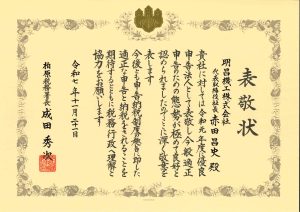 表敬状
明昌機工株式会社
代表取締役社長 赤田昌史 殿
貴社に対しては令和元年度に優良
申告法人として表敬し今般適正
申告のための態勢が極めて良好と
認められましたのでここに深く敬意を
表します
今後とも申告納税制度の趣旨に即した
適正な申告と納税をされることを
期待するとともに税務行政へ理解と
協力をお願いします
令和七年十二月二日
柏原税務署長 成田秀